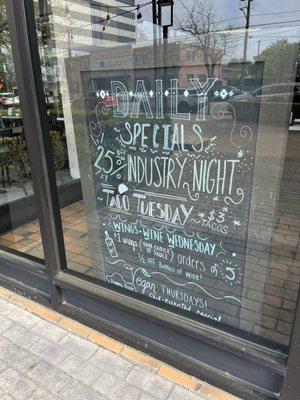 DAILY
SPECIALS
25% off
INDUSTRY NIGHT
TACO TUESDAY
$3
TACOS
WINGS + WINE WEDNESDAY
$1 wings (YOUR CHOICE OF SAUCE) orders of 5
1/2 off Bottles of wine!
Vegan THURSDAYS!
special